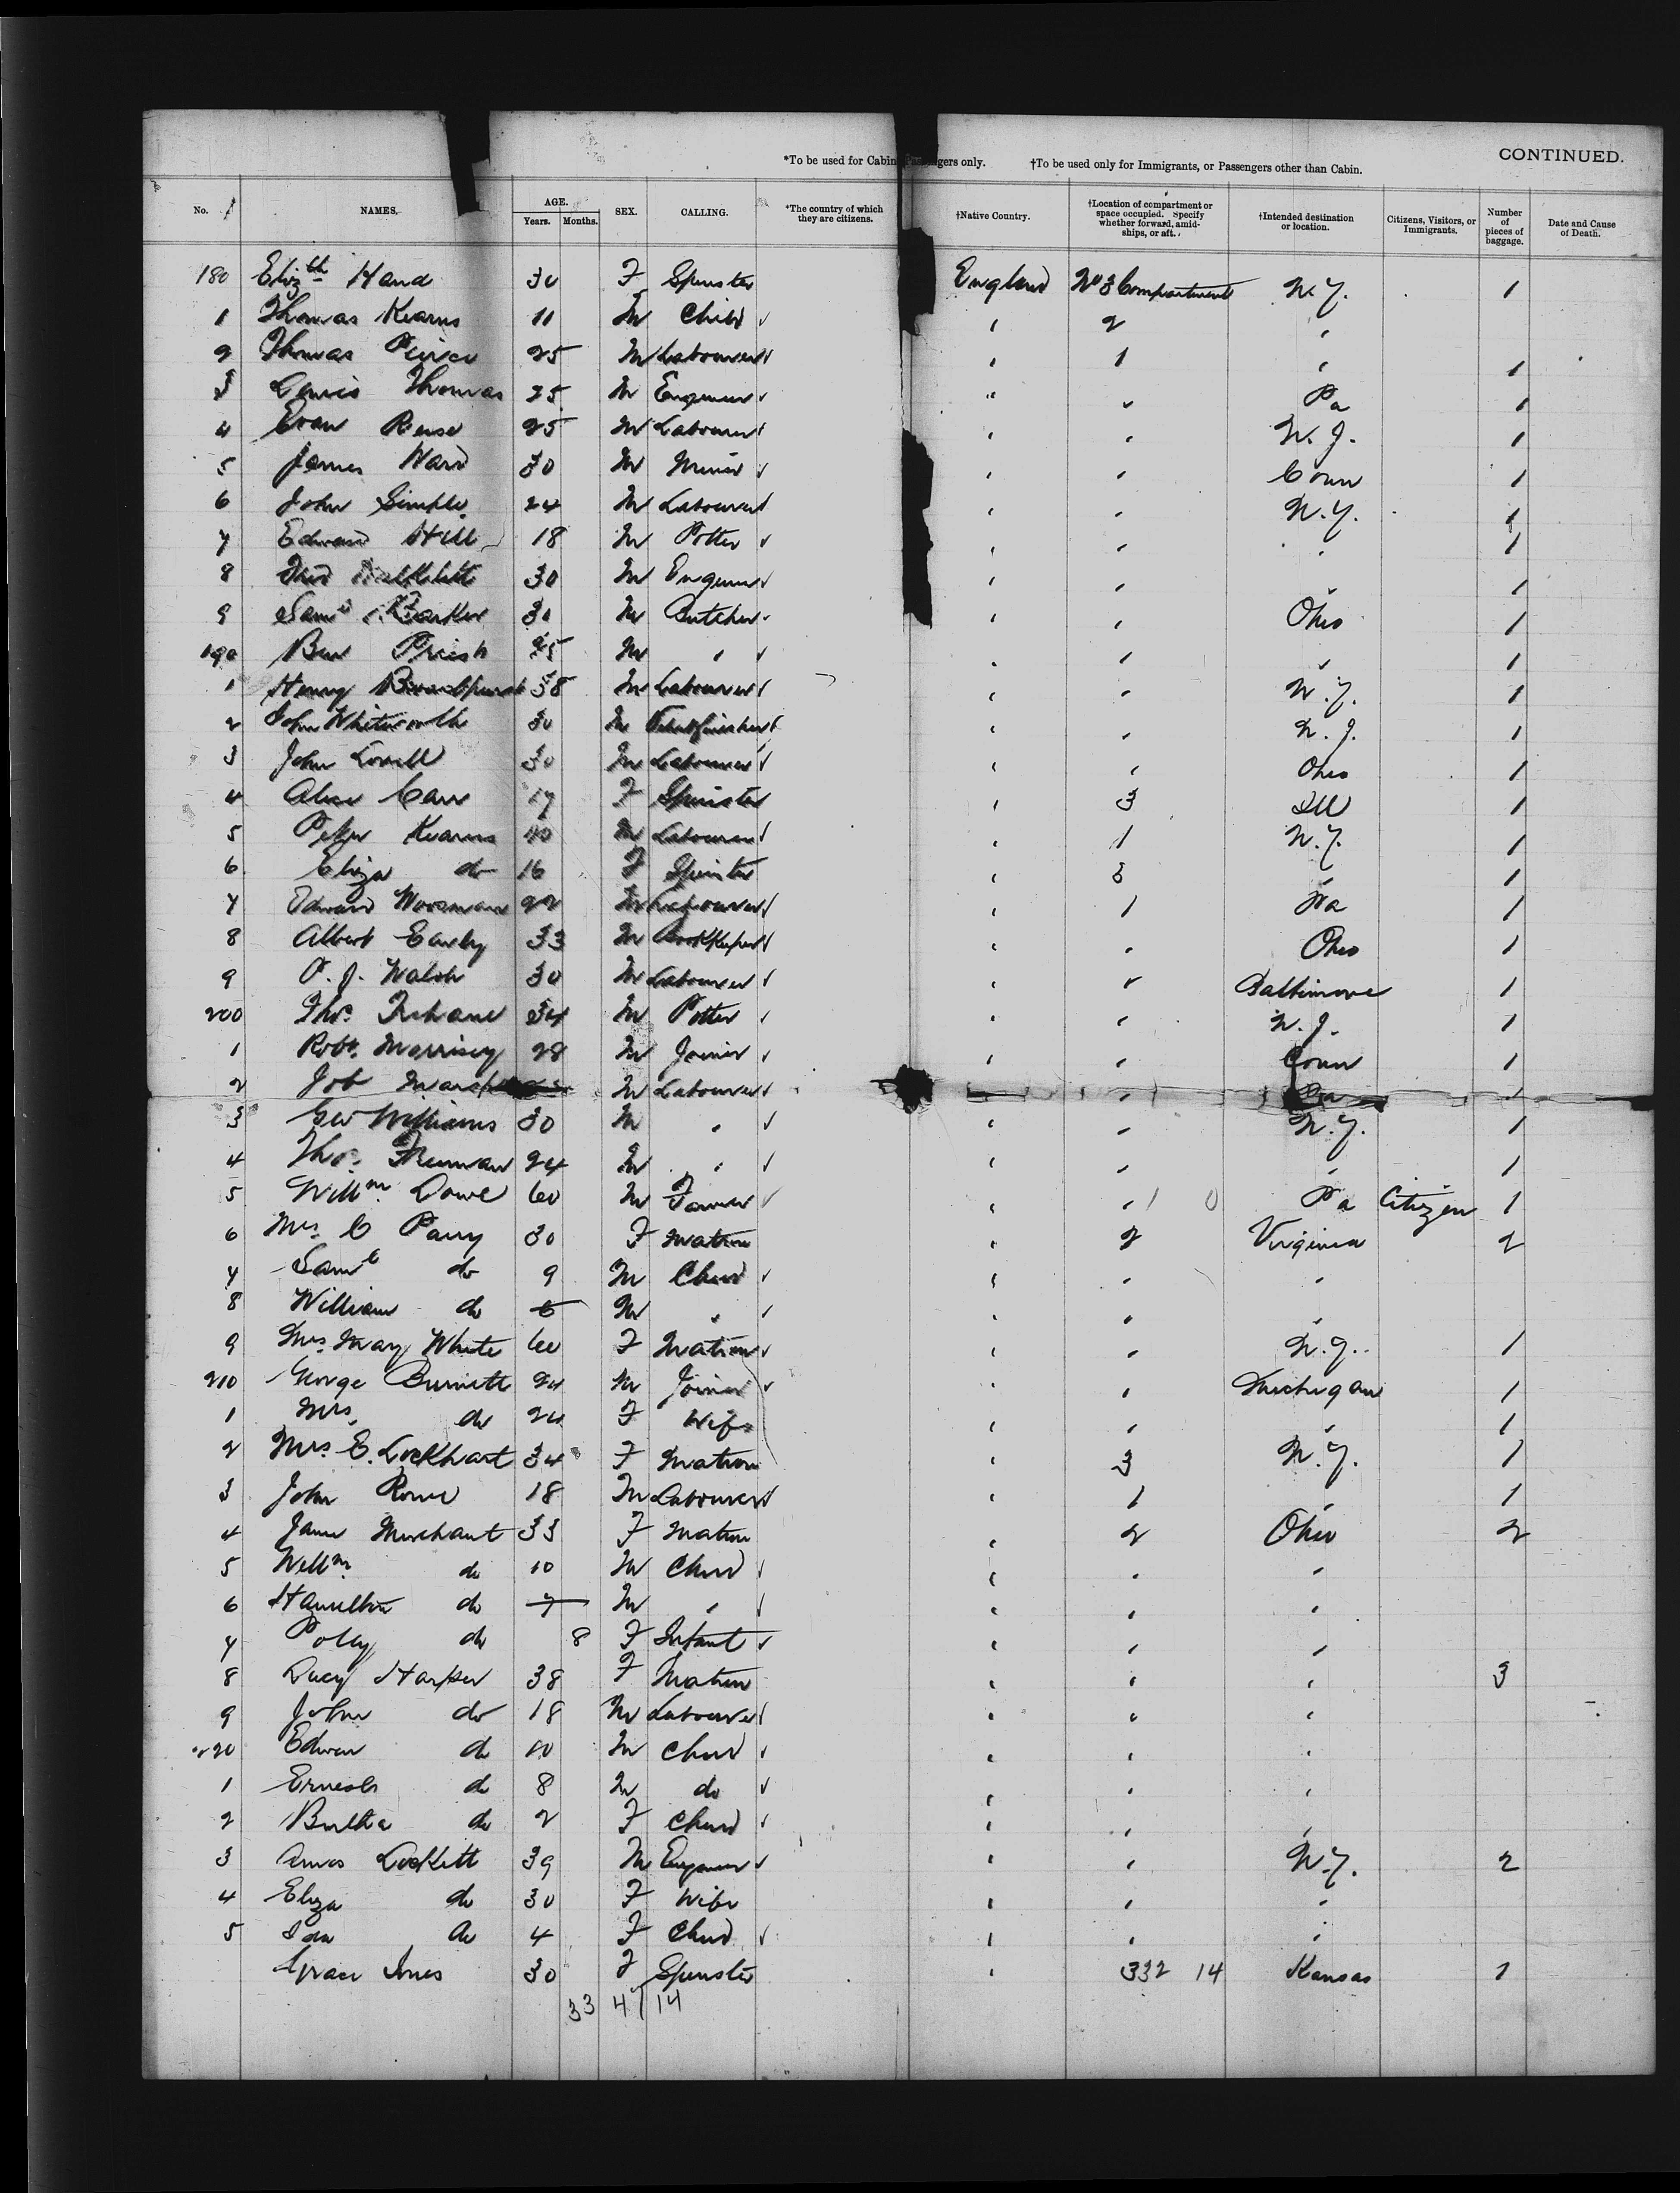 CONTINUED.
*To be used for Cabin Passengers only. †To be used only for Immigrants, or Passengers other than Cabin.
No. NAMES. AGE. Years. Months. SEX. CALLING. *The country of which they are citizens. †Native Country. †Location of compartment or space occupied. Specify whether forward, amidships, or aft. †Intended destination or location. Citizens, Visitors, or Immigrants. Number of pieces of baggage. Date and Cause of Death.
180 Elizth Hand 30 F Spinster England No 3 Compartment N.Y. 1
1 Thomas Kearns 11 M Child " 2 "
2 Thomas Peirce 25 M Labourer " 1 " 1
3 Thomas 25 M Engineer " " Pa 1
4 Evan Reese 25 M Labourer " " N.J. 1
5 James Ward 30 M Miner " " Conn 1
6 John Simple 24 M Labourer " " N.Y. 1
7 Edward Hill 18 M Potter " " " 1
8 30 M Engineer " " " 1
9 Saml Barker 30 M Butcher " " Ohio 1
190 Ben 25 M " " " " 1
1 Henry Broadhurst 38 M Labourer " " N.Y. 1
2 John Whitworth 30 M " " N.J. 1
3 John Lovell 30 M Labourer " " Ohio 1
4 Alice Carr 17 F Spinster " 3 Ill 1
5 Peter Kearns 40 M Labourer " 1 N.Y. 1
6 Eliza do 16 F Spinster " 3 " 1
7 Edward Woosman 22 M Labourer " 1 Pa 1
8 Albert Early 33 M Bookkeeper " " Ohio 1
9 P. J. Walsh 30 M Labourer " " Baltimore 1
200 Thos. 34 M Potter " " N.J. 1
1 Robt. Morrisey 28 M Joiner " " Conn 1
2 Job M Labourer " "
3 Geo Williams 30 M " " " N.Y. 1
4 Thos. Freeman 24 M " " " " 1
5 Willm. Dowe 60 M Farmer " " 1 0 Pa Citizen 1
6 Mrs. C Parry 30 F Matron " 2 Virginia 2
7 Saml do 9 M Child " " "
8 William do 6 M " " " "
9 Mrs. Mary White 60 F Matron " " N.J. 1
210 George Burnett 24 M Joiner " " Michigan 1
1 Mrs. do 24 F Wife " " " 1
2 Mrs. E. Lockhart 34 F Matron " 3 N.Y. 1
3 John Rowe 18 M Labourer " 1 " 1
4 Jane Merchant 33 F Matron " 2 Ohio 2
5 Willm. do 10 M Child " " "
6 Hamilton do 7 M " " " "
7 Polly do 8 F Infant " " "
8 Lucy Harper 38 F Matron " " " 3
9 John do 18 M Labourer " " "
220 Edwin do 10 M Child " " "
1 Ernest do 8 M do " " "
2 Bertha do 2 F Child " " "
3 Amos Lockett 39 M Engineer " " N.Y. 2
4 Eliza do 30 F Wife " " "
5 Ida do 4 F Child " " "
Grace Jones 30 F Spinster " 332 14 Kansas 1
33 47 14